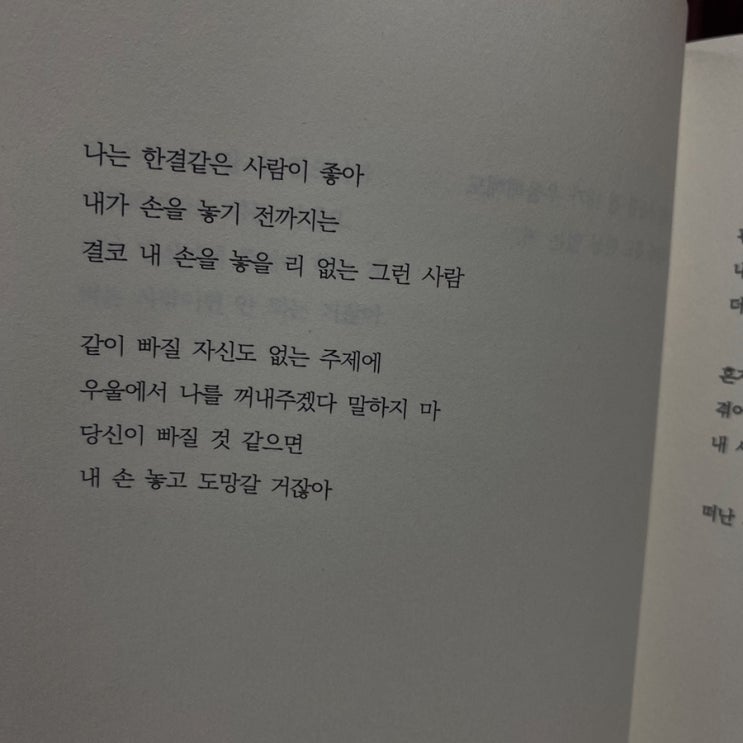 나는 한결같은 사람이 좋아
내가 손을 놓기 전까지는
결코 내 손을 놓을 리 없는 그런 사람
같이 빠질 자신도 없는 주제에
우울에서 나를 꺼내주겠다 말하지 마
당신이 빠질 것 같으면
내 손 놓고 도망갈 거잖아
내
떠난